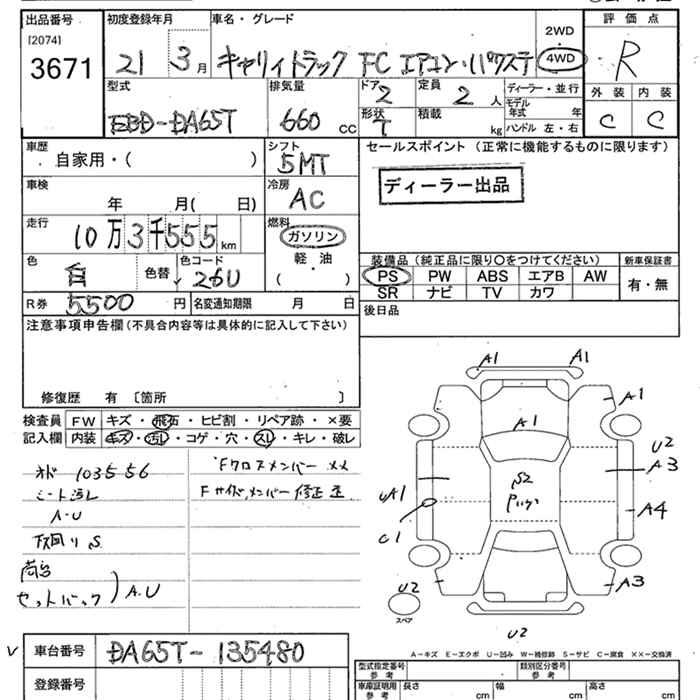 出品番号 初度登録年月 車名・グレード 2WD 評価点
[2074]
3671 21 3月 キャリイトラック FC エアコン・パワステ 4WD R
型式 排気量 ドア 定員 ディーラー・並行 外装 内装
2 2人 モデル年式 年
EBD-DA65T 660CC 形状 積載 C C
T kg ハンドル 左・右
車歴 シフト セールスポイント (正常に機能するものに限ります)
自家用・( ) 5MT
車検 冷房 ディーラー出品
年 月( 日) AC
走行 燃料
10万3千555km ガソリン
軽・油
色 色替 色コード ( ) 装備品 (純正品に限り○をつけてください) 新車保証書
白 26U PS PW ABS エアB AW 有・無
SR ナビ TV カワ
R券 5500円 名変通知期限 月 日 後日品
注意事項申告欄 (不具合内容等は具体的に記入して下さい)
修復歴 有 〔箇所 〕
検査員 FW キズ・飛石・ヒビ割・リペア跡・×要
記入欄 内装 キズ・汚れ・コゲ・穴・スレ・キレ・破レ
オド 103556 Fクロスメンバー ××
シート汚レ Fサイドメンバー修正歪
A-U
下回りS
荷台
セットバック A.U
A1 A1
A1
A1 U2
A3
S2
UA1
A4
C1
A3
U2
スペア
U2
A-キズ E-エクボ U-凹み W-補修跡 S-サビ C-腐食 ××-交換済
車台番号 DA65T-135480
型式指定番号 参考 類別区分番号 参考
登録番号 車庫証明用 参考 長さ cm 幅 cm 高さ cm